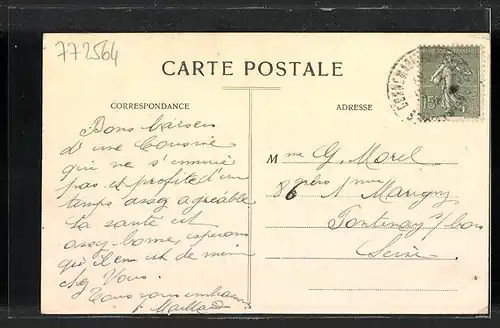 772564
CARTE POSTALE
CORRESPONDANCE
ADRESSE
15
Bons baisers
d'une Cousine
qui ne s'ennuie
pas et profite d'un
temps assez agréable
Ta santé est
assez bonne, espérons
qu'il en est de même
chez Vous.
Tous vous embrassent
Maillard
Mme G. Morel
86 rue Marigny
Fontenay s/ bois
Seine